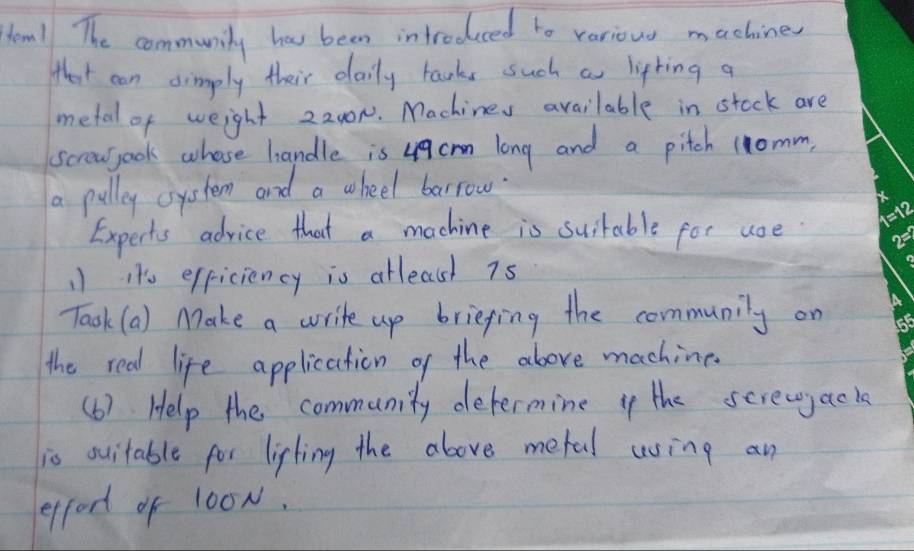 Item1 The community has been introduced to various machines
that can simply their daily tasks such as lifting a
metal of weight 2200N. Machines available in stock are
screwjack whose handle is 49cm long and a pitch 110mm,
a pulley system and a wheel barrow.
Experts advice that a machine is suitable for use
1) it's efficiency is atleast 75
Task (a) Make a write up briefing the community on
the real life application of the above machines
(b) Help the community determine if the screwjack
is suitable for lifting the above metal using an
effort of 100N.
x
1=12